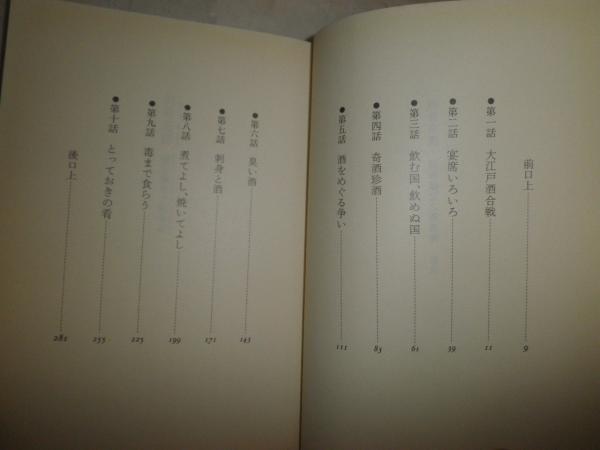 前口上 9
●第一話 大江戸酒合戦 11
●第二話 宴席いろいろ 39
●第三話 飲む国、飲めぬ国 61
●第四話 奇酒珍酒 83
●第五話 酒をめぐる争い 111
●第六話 臭い酒 143
●第七話 刺身と酒 171
●第八話 煮てよし、焼いてよし 199
●第九話 毒まで食らう 225
●第十話 とっておきの肴 255
後口上 281